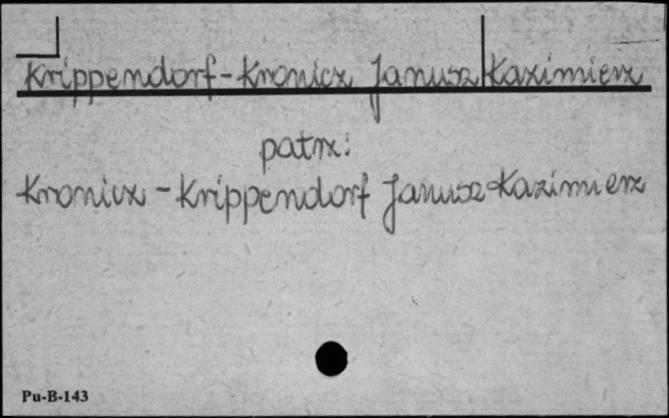 Krippendorf-Kronicz Janusz Kazimierz
patrz:
Kronicz-Krippendorf Janusz Kazimierz
Pu-B-143